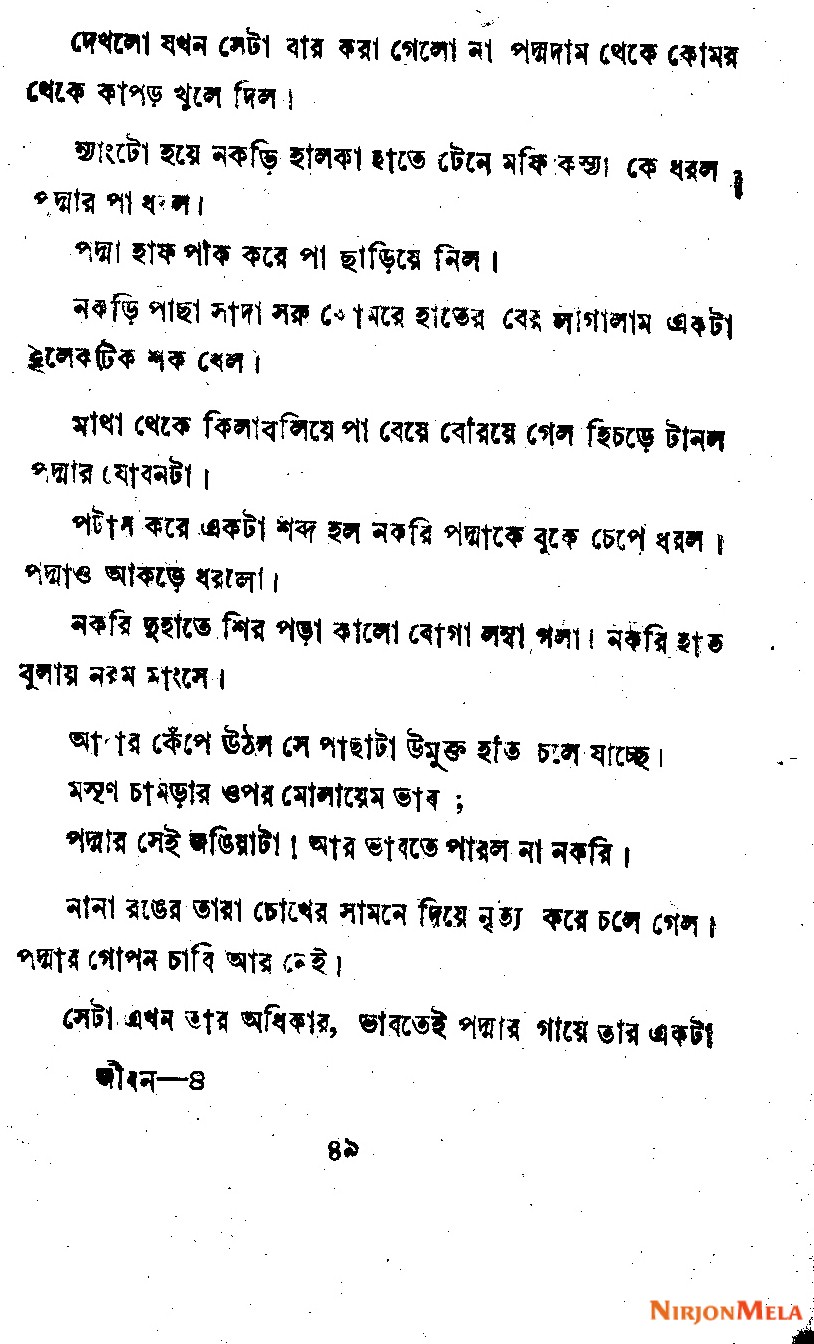 দেখলো যখন সেটা বার করা গেলো না পদ্মদাম থেকে কোমর
থেকে কাপড় খুলে দিল।
ন্যাংটো হয়ে নকড়ি হালকা হাতে টেনে মফি কে ধরল
পদ্মার পা
পদ্মা হাফ পাঁক করে পা ছাড়িয়ে নিল।
নকড়ি পাছা সাদা সরু কোমরে হাতের বের লাগালাম একটা
ইলেকটিক শক খেল।
মাথা থেকে কিলাবলিয়ে পা বেয়ে বেরিয়ে গেল হিচড়ে টানল
পদ্মার যোবনটা।
পটান করে একটা শব্দ হল নকরি পদ্মাকে বুকে চেপে ধরল।
পদ্মাও আকড়ে ধরলো।
নকরি দুহাতে শির পড়া কালো রোগা লম্বা গলা। নকরি হাত
বুলায় নরম মাংসে।
আবার কেঁপে উঠল সে পাছাটা উমুক্ত হাত চলে যাচ্ছে।
মসৃণ চামড়ার ওপর মোলায়েম ভাব;
পদ্মার সেই জঙিয়াটা! আর ভাবতে পারল না নকরি।
নানা রঙের তারা চোখের সামনে দিয়ে নৃত্য করে চলে গেল।
পদ্মার গোপন চাবি আর নেই।
সেটা এখন তার অধিকার, ভাবতেই পদ্মার গায়ে তার একটা
জীবন—৪
৪৯
NIRJONMELA